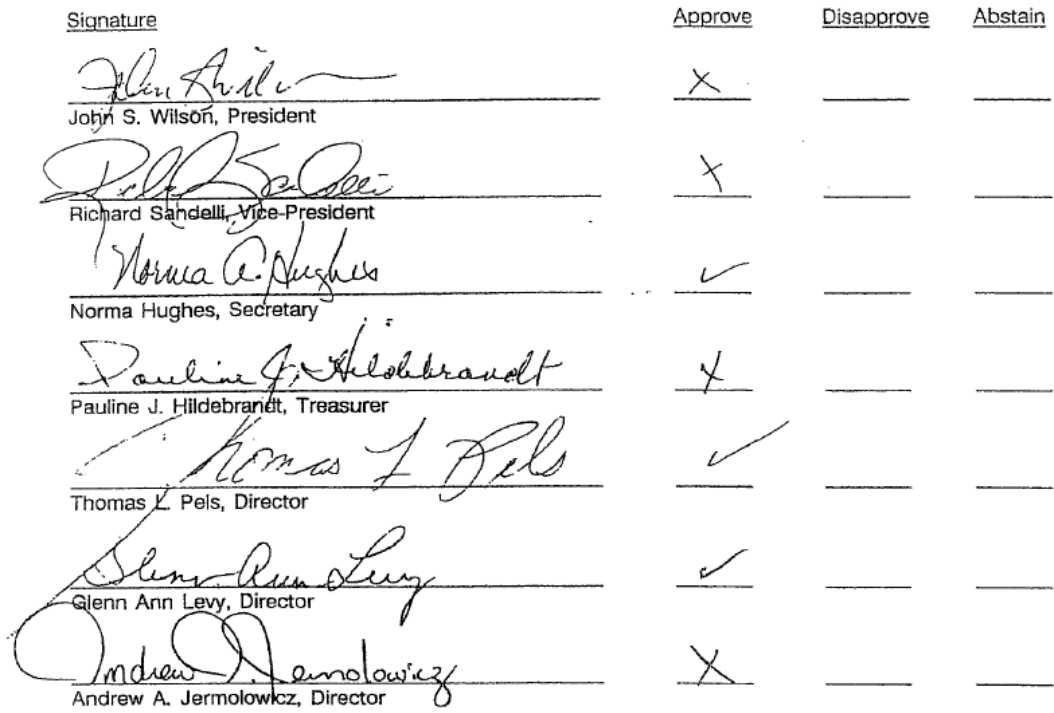 Signature Approve Disapprove Abstain
John S. Wilson X
John S. Wilson, President
X
Richard Sandelli, Vice-President
Norma A. Hughes ✓
Norma Hughes, Secretary
Pauline J. Hildebrandt X
Pauline J. Hildebrandt, Treasurer
Thomas L Pels ✓
Thomas L. Pels, Director
Glenn Ann Levy ✓
Glenn Ann Levy, Director
Andrew A. Jermolowicz X
Andrew A. Jermolowicz, Director